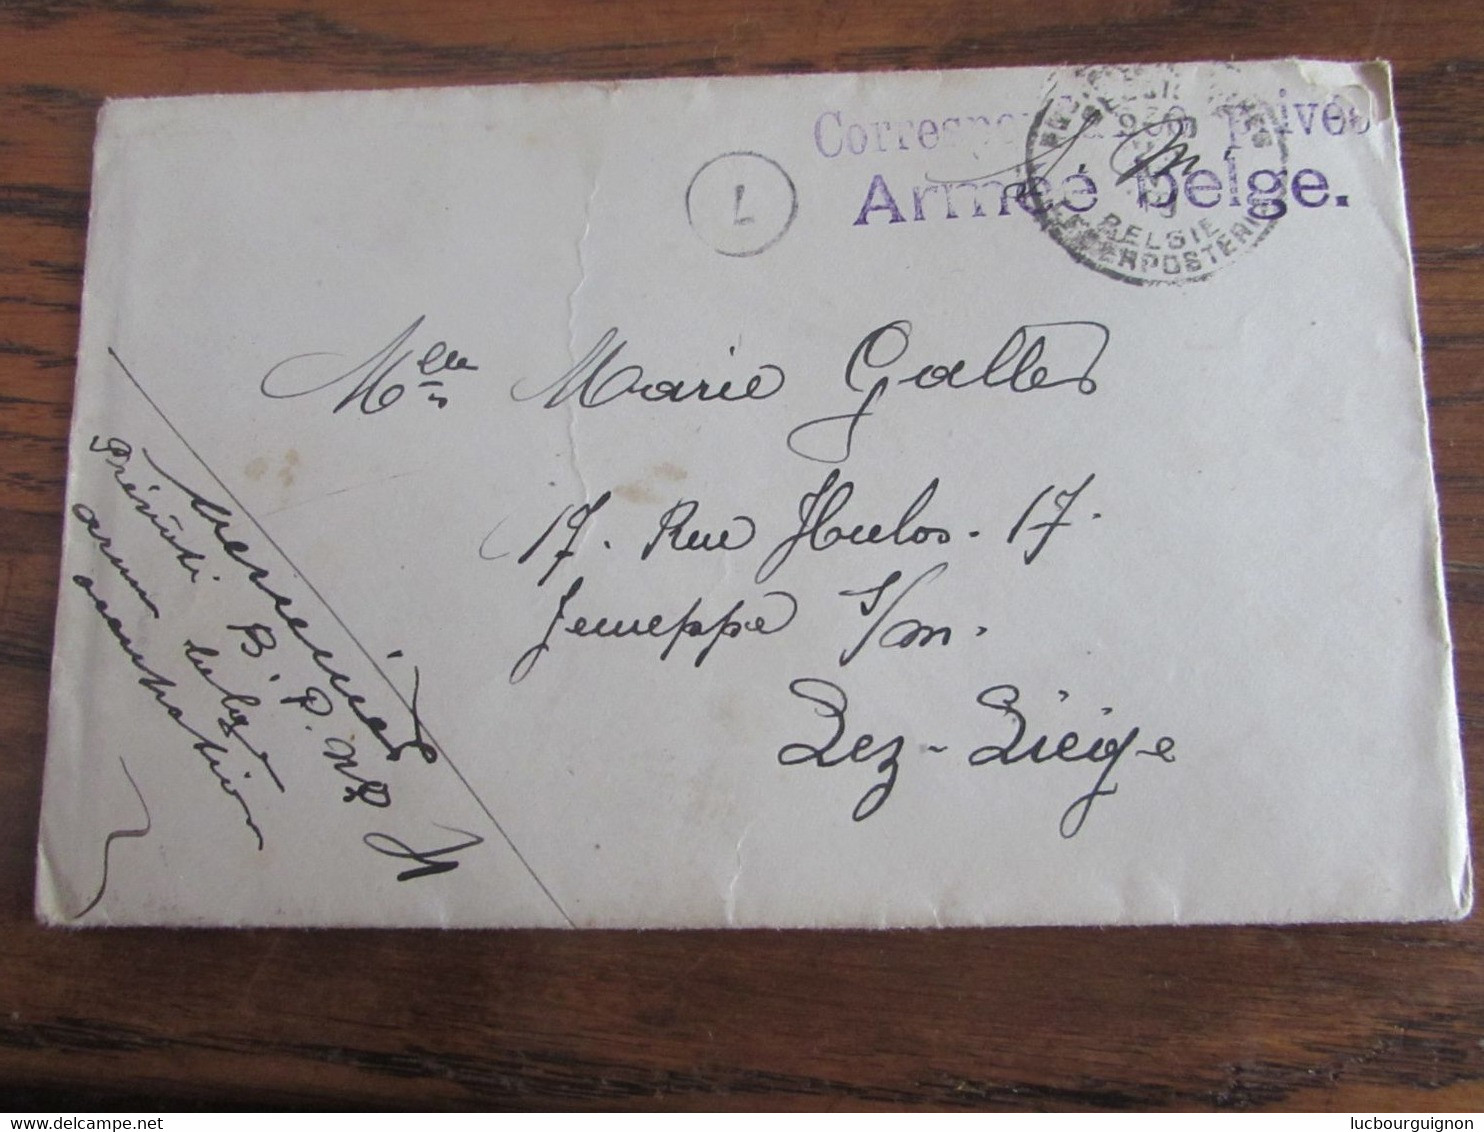 Correspondance privée
Armée belge.
BELGIE
LEGERPOSTERIJ
Melle Marie Galles
17. Rue Hulos. 17.
Jemeppe s/m.
Lez-Liège
B. P. N°
armée belge
occupation
delcampe.net
lucbourguignon